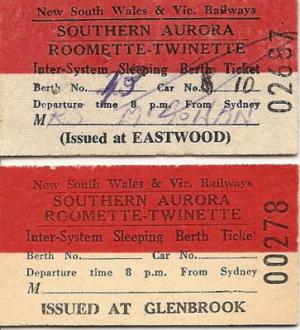 New South Wales & Vic. Railways
SOUTHERN AURORA
ROOMETTE-TWINETTE
Inter-System Sleeping Berth Ticket
Berth No. Car No. 10
Departure time 8 p.m. From Sydney
M
(Issued at EASTWOOD)
02687
New South Wales & Vic. Railways
SOUTHERN AURORA
ROOMETTE-TWINETTE
Inter-System Sleeping Berth Ticket
Berth No. Car No.
Departure time 8 p.m. From Sydney
M
ISSUED AT GLENBROOK
00278